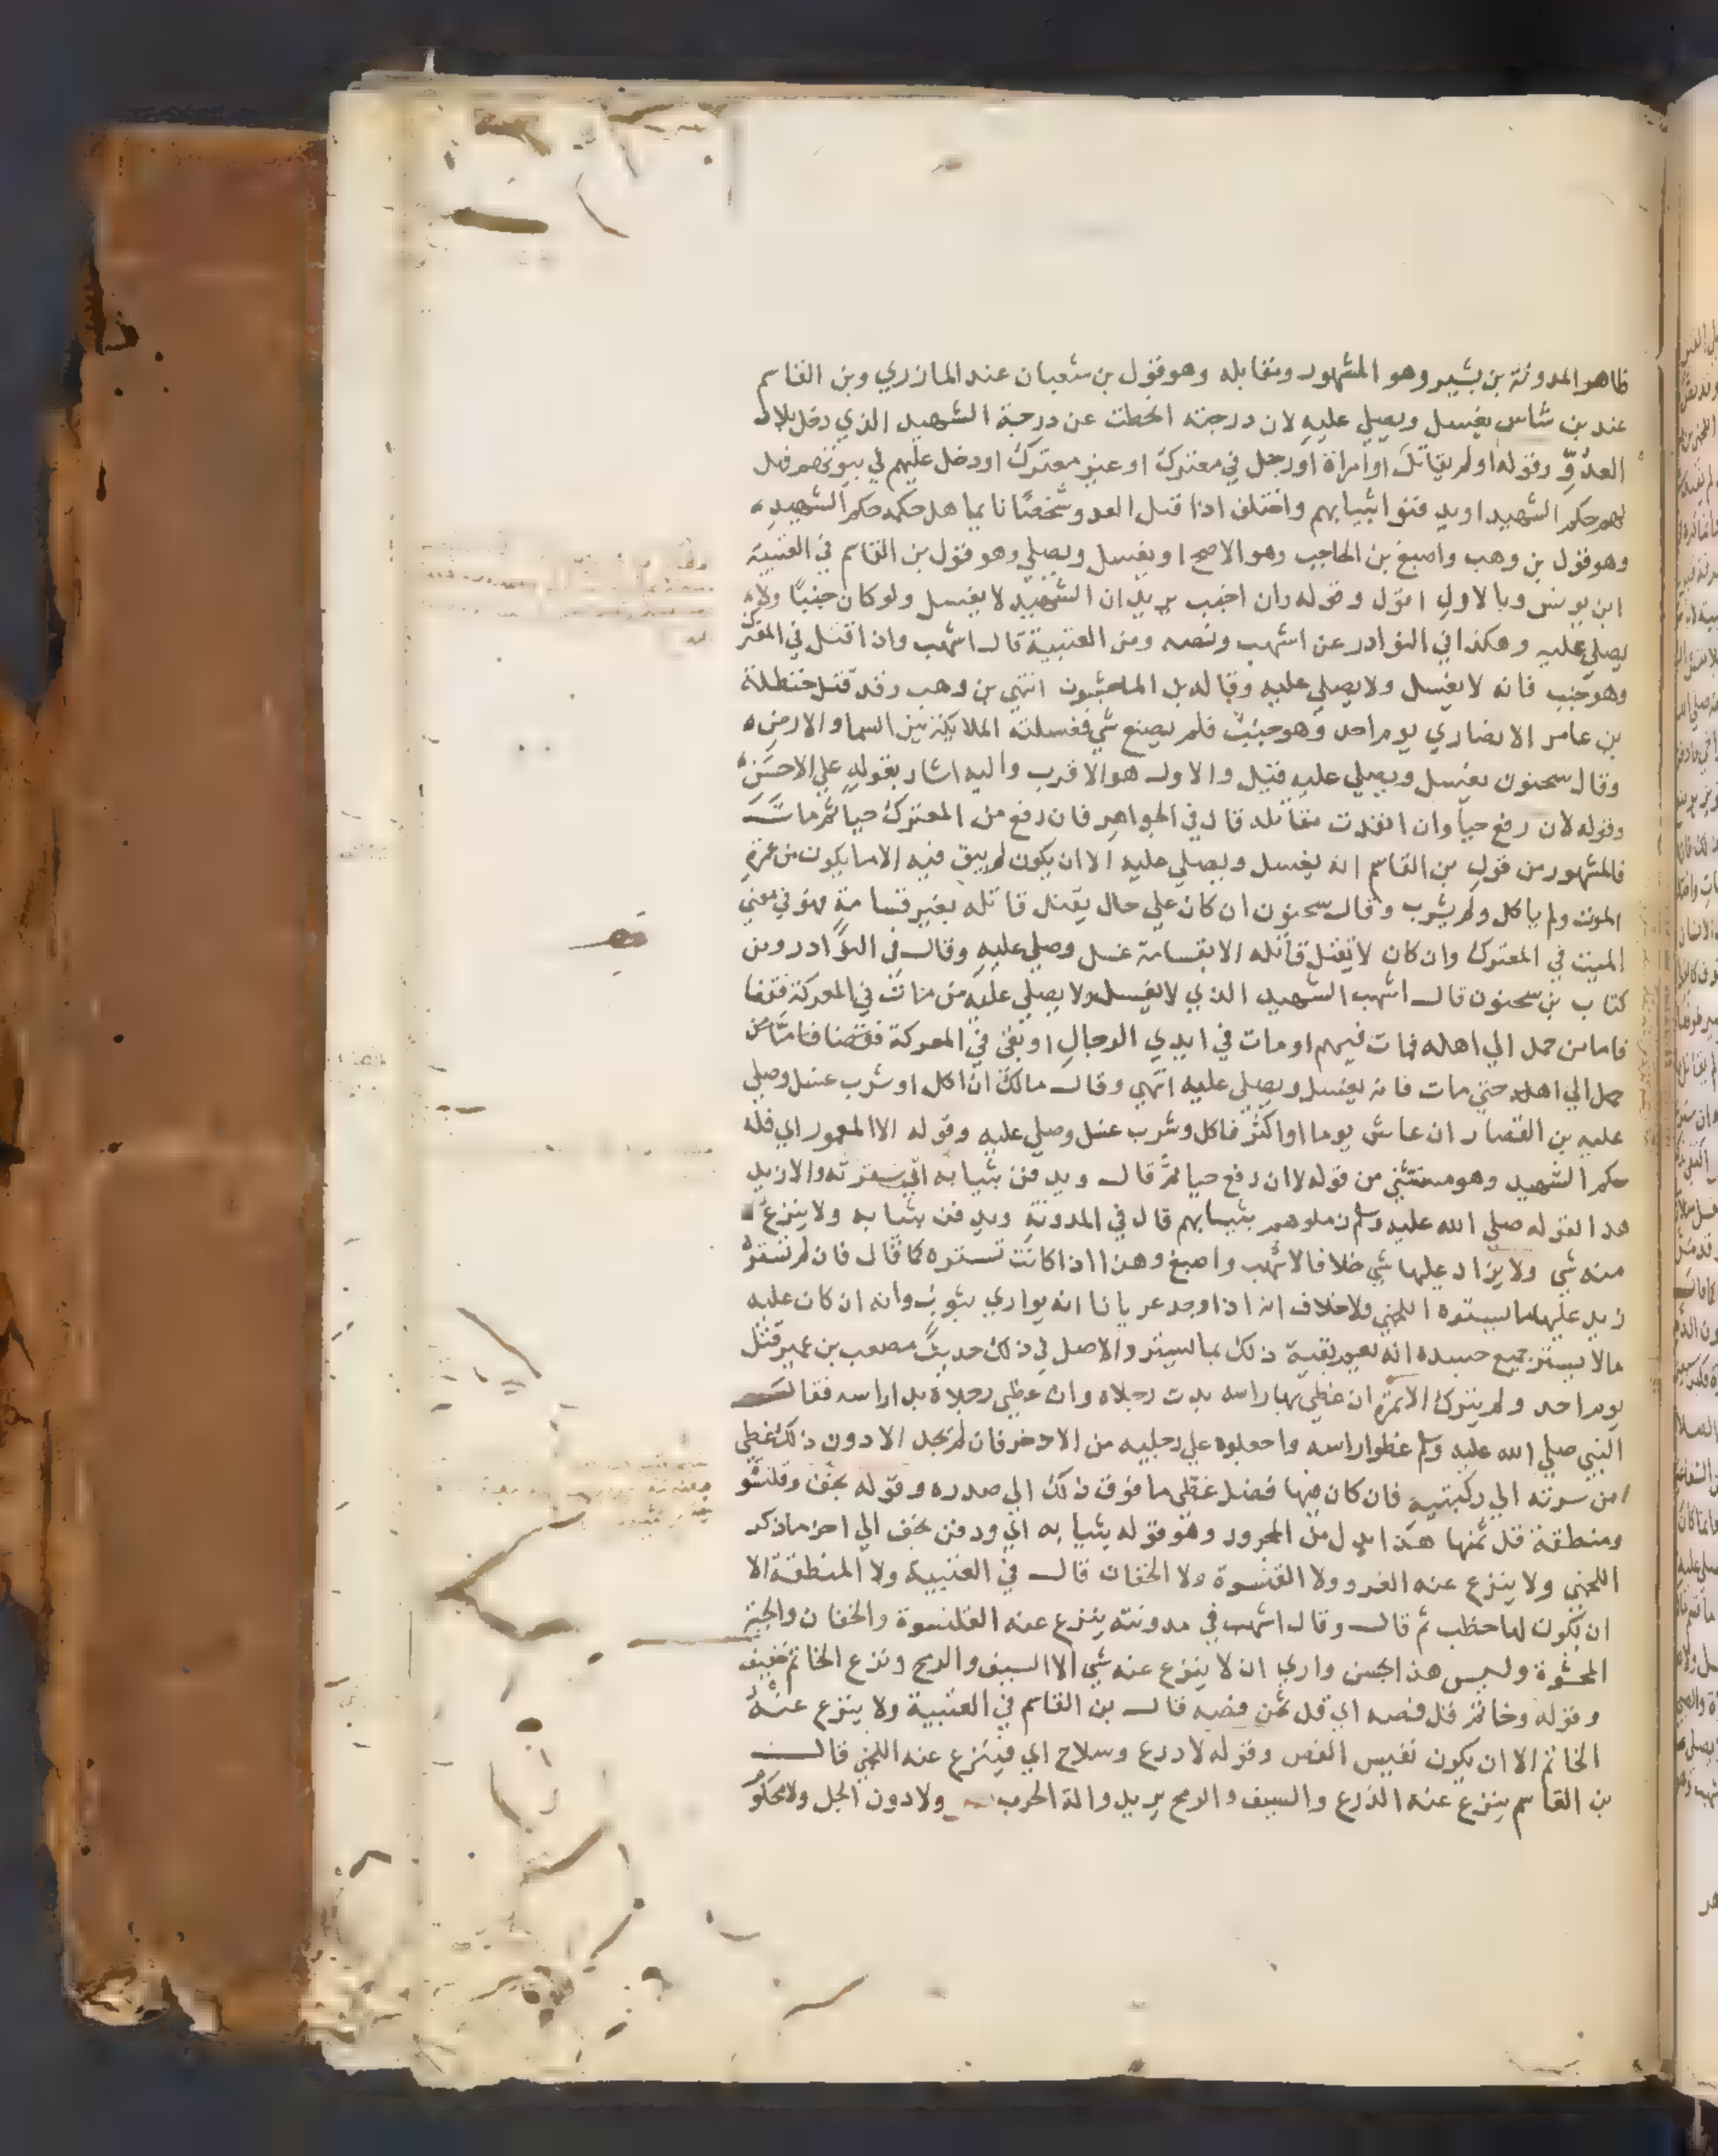 ظاهر المدونة بن بشير وهو المشهور ومقابله وهو قول بن شعبان عند المازري وبن القاسم
عند بن شاس يغسل ويصلي عليه لان درجته انحطت عن درجة الشهيد الذي دخل بلاد
العدوّ وقوله او لم يقاتل او امراة او رجل في معترك او غير معترك او دخل عليهم في بيوتهم فهل
لهم حكم الشهيد او يدفنوا بثيابهم واختلف اذا قتل العدو شخصا نايما هل حكمه حكم الشهيد
وهو قول بن وهب واصبغ بن الحاجب وهو الاصح او يغسل ويصلي وهو قول بن القاسم في العتبية
ابن يونس وبالاول اقول وقوله وان اجنب يريد ان الشهيد لا يغسل ولو كان جنبًا ولا
يصلي عليه وهكذا في النوادر عن اشهب ونصه ومن العتبية قال اشهب واذا قتل في المعترك
وهو جنب فانه لا يغسل ولا يصلي عليه وقاله بن الماجشون انتهي بن وهب وقد قتل حنظلة
بن عامر الانصاري يوم احد وهو جنب فلم يصنع شي فغسلته الملايكة بين السما والارض
وقال سحنون يغسل ويصلي عليه قتيل والاول هو الاقرب واليه اشار بقوله علي الاحسن
وقوله لان رفع حيا وان انفذت مقاتله قال في الجواهر فان رفع من المعترك حيا ثم مات
فالمشهور من قول بن القاسم انه يغسل ويصلي عليه الا ان يكون لم يبق فيه الا ما يكون من غمرة
الموت ولم ياكل ولم يشرب وقال سحنون ان كان علي حال يقتل قاتله بغير قسامة فهو في معني
الميت في المعترك وان كان لا يقتل قاتله الا بقسامة غسل وصلي عليه وقال في النوادر وبن
كتاب بن سحنون قال اشهب الشهيد الذي لا يغسل ولا يصلي عليه من مات في المعركة فقضا
فاما من حمل الي اهله فمات فيهم او مات في ايدي الرجال او بقي في المعركة فقضا فاما من
حمل الي اهله حتي مات فانه يغسل ويصلي عليه انتهي وقال مالك ان اكل او شرب غسل وصلي
عليه بن القصار ان عاش يوما او اكثر فاكل وشرب غسل وصلي عليه وقوله الا المغمور اي فله
حكم الشهيد وهو مستثني من قوله لا ان رفع حيا ثم قال ويدفن بثيابه ان سترته والا زيد
هذا لقوله صلي الله عليه وسلم زملوهم بثيابهم قال في المدونة ويدفن بثيابه ولا ينزع
منه شي ولا يزاد عليها شي خلافا لاشهب واصبغ وهذا اذا كانت تستره كما قال فان لم تستره
زيد عليها ما يستره اللخمي ولا خلاف انه اذا وجد عريانا انه يواري بثوب وانه ان كان عليه
ما لا يستر جميع جسده انه يعيد بقية ذلك بما يستر والاصل في ذلك حديث مصعب بن عمير قتل
يوم احد ولم يترك الا نمرة ان غطي بها راسه بدت رجلاه وان غطي رجلاه بدا راسه فقال
النبي صلي الله عليه وسلم غطوا راسه واجعلوه علي رجليه من الاذخر فان لم تجد الا دون ذلك غطي
من سرته الي ركبتيه فان كان فيها فضل غطي ما فوق ذلك الي صدره وقوله بخف وقلنسو
ومنطقة قل ثمنها هذا بدل من المجرور وهو قوله بثيابه اي ودفن بخف الي اخر ما ذكر
اللخمي ولا ينزع عنه الفرو ولا القلنسوة ولا الخفان قال في العتبية ولا المنطقة الا
ان يكون لها خطب ثم قال وقال اشهب في مدونته ينزع عنه القلنسوة والخفان والجبة
المحشوة وليس هذا بحسن واري ان لا ينزع عنه شي الا السيف والرمح ونزع الخاتم خفيف
وقوله وخاتم قل فصه اي قل ثمن فصه قال بن القاسم في العتبية ولا ينزع عنه
الخاتم الا ان يكون نفيس الفص وقوله لا درع وسلاح اي فينزع عنه اللخمي قال
بن القاسم ينزع عنه الدرع والسيف والرمح يريد والة الحرب ولا دون الجل ولا محكو